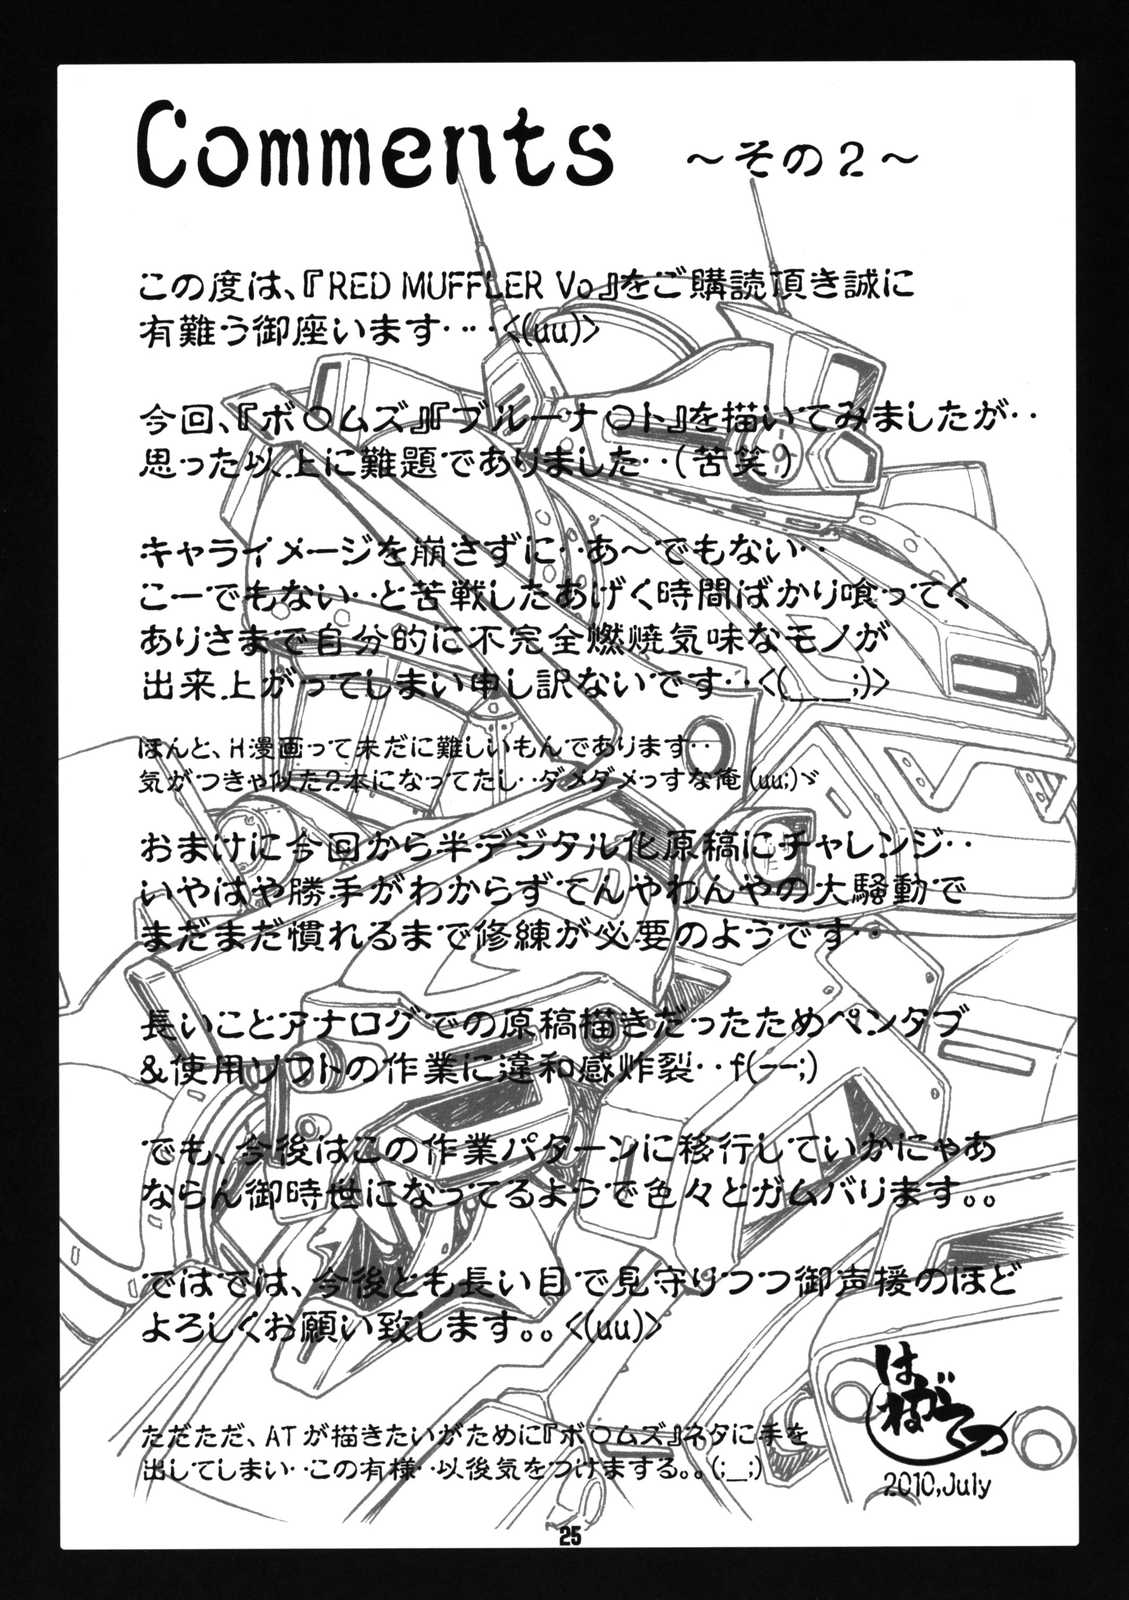 Comments ～その２～
この度は、『RED MUFFLER Vo』をご購読頂き誠に
有難う御座います‥‥<(uu)>
今回、『ボ〇ムズ』『ブルーナ〇ト』を描いてみましたが‥
思った以上に難題でありました‥(苦笑)
キャライメージを崩さずに‥あ～でもない‥
こーでもない‥と苦戦したあげく時間ばかり喰ってく
ありさまで自分的に不完全燃焼気味なモノが
出来上がってしまい申し訳ないです‥<(__;)>
ほんと、H漫画って未だに難しいもんであります‥
気がつきゃ似た2本になってたし‥ダメダメっすな俺(uu;)ゞ
おまけに今回から半デジタル化原稿にチャレンジ‥
いやはや勝手がわからずてんやわんやの大騒動で
まだまだ慣れるまで修練が必要のようです‥
長いことアナログでの原稿描きだったためペンタブ
&使用ソフトの作業に違和感炸裂‥f(--;)
でも、今後はこの作業パターンに移行していかにゃあ
ならん御時世になってるようで色々とガムバります。。
ではでは、今後とも長い目で見守りつつ御声援のほど
よろしくお願い致します。。<(uu)>
ただただ、ATが描きたいがために『ボ〇ムズ』ネタに手を
出してしまい‥この有様‥以後気をつけまする。。(;_;)
はねがてつ
2010,July
25